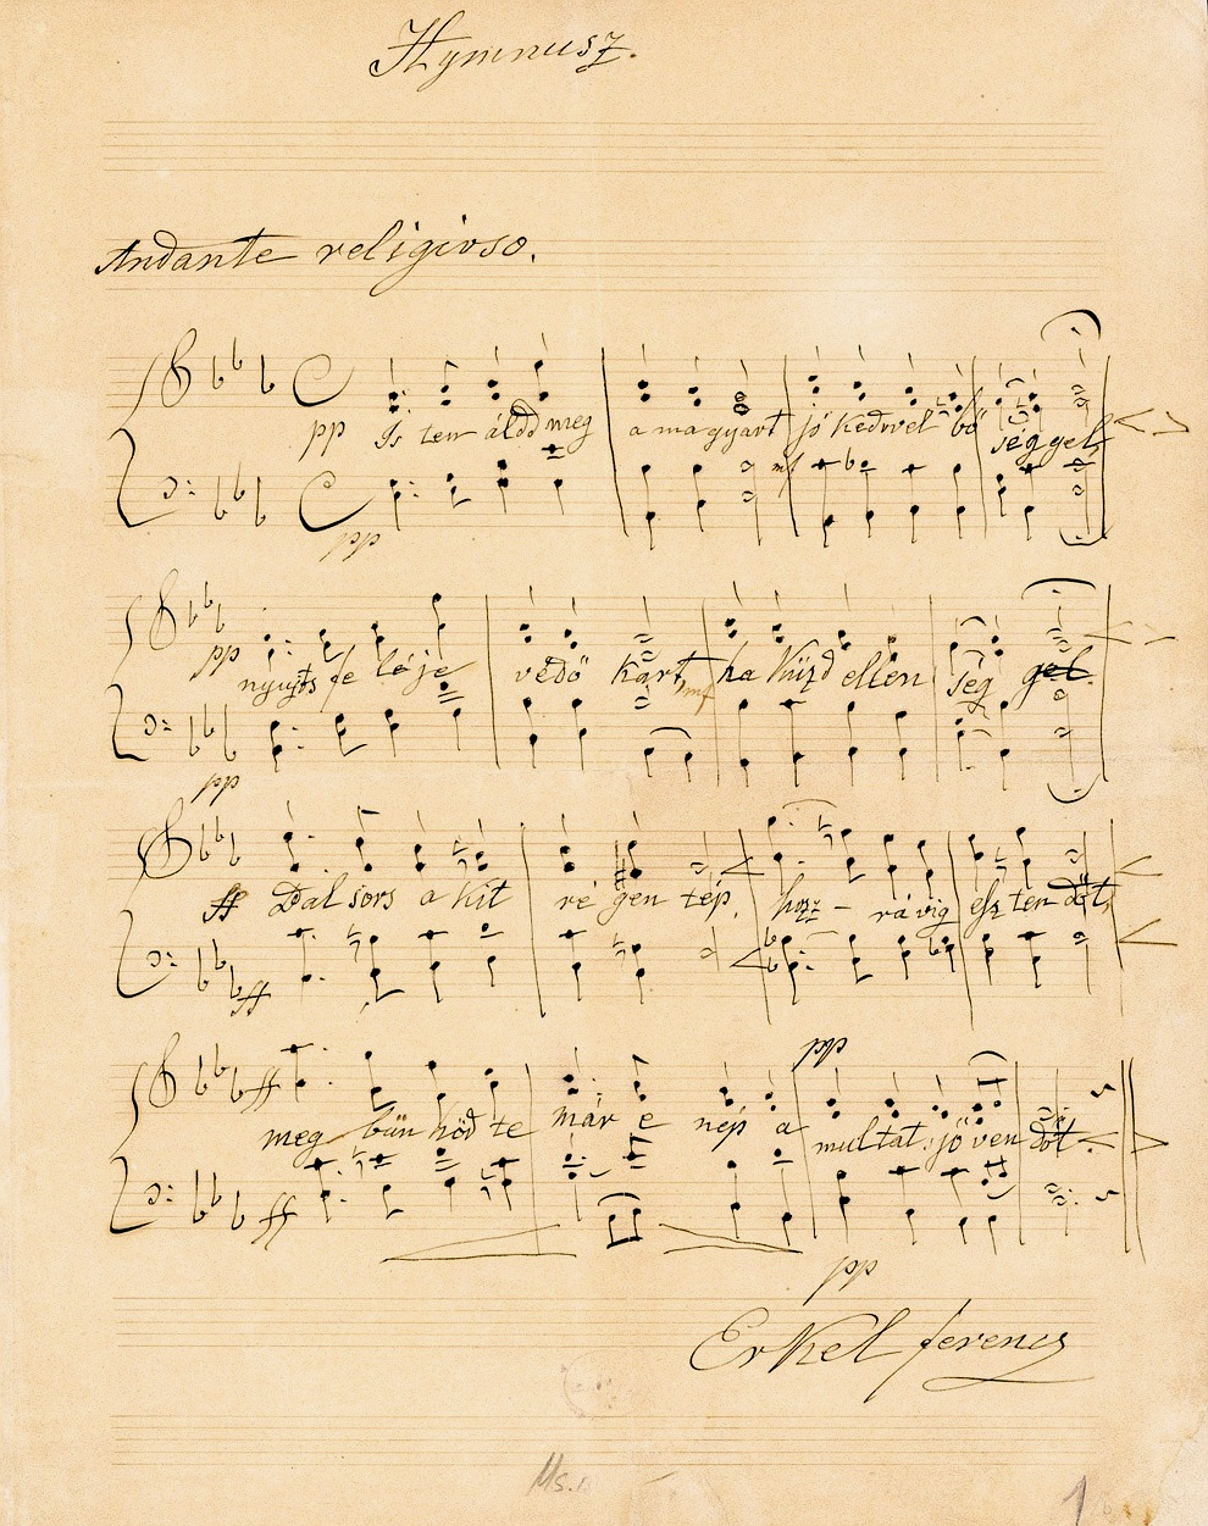 Hymnusz.
Andante religioso.
pp Is ten áldd meg a magyart jó kedvvel bő ség gel,
mf
pp
pp nyujts fe lé je védő kart, ha küzd ellen ség gel.
mf
pp
ff Bal sors a kit ré gen tép, hozz - rá víg esz ten dőt,
ff
pp
ff meg bün hőd te már e nép a multat, jö ven dőt.
ff
pp
Erkel ferencz
Ms.
1